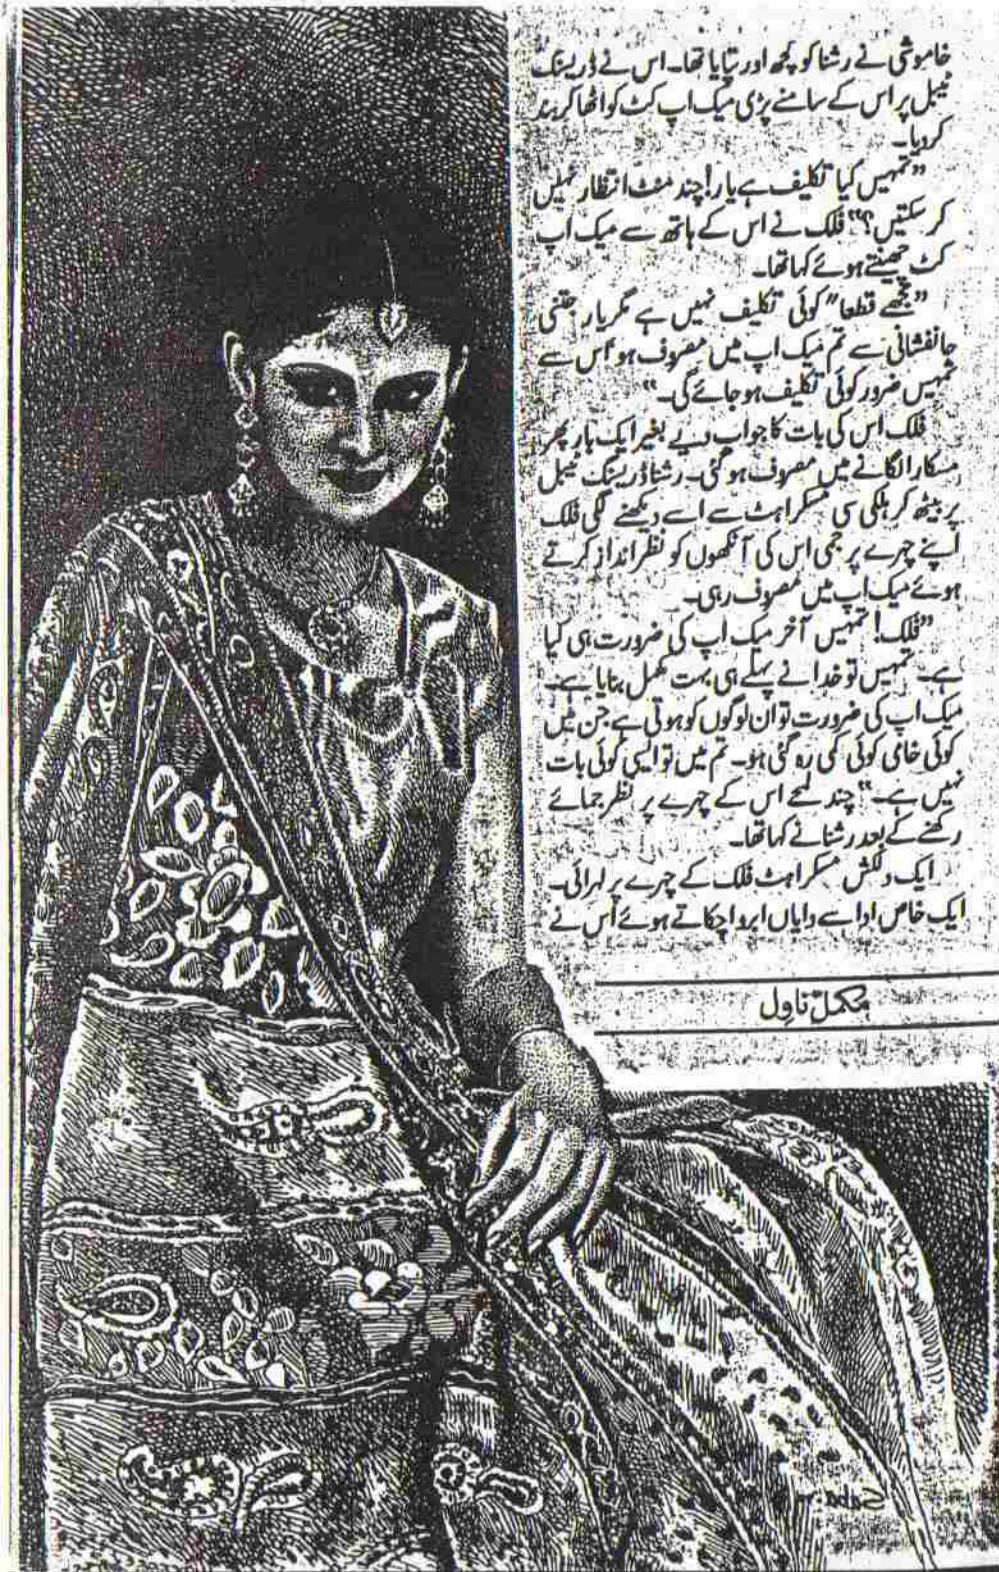 خاموشی نے رشنا کو کچھ اور بتایا تھا۔ اس نے ڈریسنگ
ٹیبل پر اس کے سامنے پڑی میک اپ کٹ کو اٹھا کر بند
کر دیا۔
”تمہیں کیا تکلیف ہے یار! چند منٹ انتظار نہیں
کر سکتیں؟“ فلک نے اس کے ہاتھ سے میک اپ
کٹ چھینتے ہوئے کہا تھا۔
”مجھے قطعا" کوئی تکلیف نہیں ہے مگر یار جتنی
جانفشانی سے تم میک اپ میں مصروف ہو اس سے
تمہیں ضرور کوئی تکلیف ہو جائے گی۔“
فلک اس کی بات کا جواب دیے بغیر ایک بار پھر
مسکارا لگانے میں مصروف ہو گئی۔ رشنا ڈریسنگ ٹیبل
پر بیٹھ کر ہلکی سی مسکراہٹ سے اسے دیکھنے لگی فلک
اپنے چہرے پر جمی اس کی آنکھوں کو نظر انداز کرتے
ہوئے میک اپ میں مصروف رہی۔
”فلک! تمہیں آخر میک اپ کی ضرورت ہی کیا
ہے۔ تمہیں تو خدا نے پہلے ہی بہت مکمل بنایا ہے۔
میک اپ کی ضرورت تو ان لوگوں کو ہوتی ہے جن میں
کوئی خامی کوئی کمی رہ گئی ہو۔ تم میں تو ایسی کوئی بات
نہیں ہے۔“ چند لمحے اس کے چہرے پر نظر جمائے
رکھنے کے بعد رشنا نے کہا تھا۔
ایک دلکش مسکراہٹ فلک کے چہرے پر لہرائی۔
ایک خاص ادا سے دایاں ابرو اچکاتے ہوئے اس نے
مکمل ناول